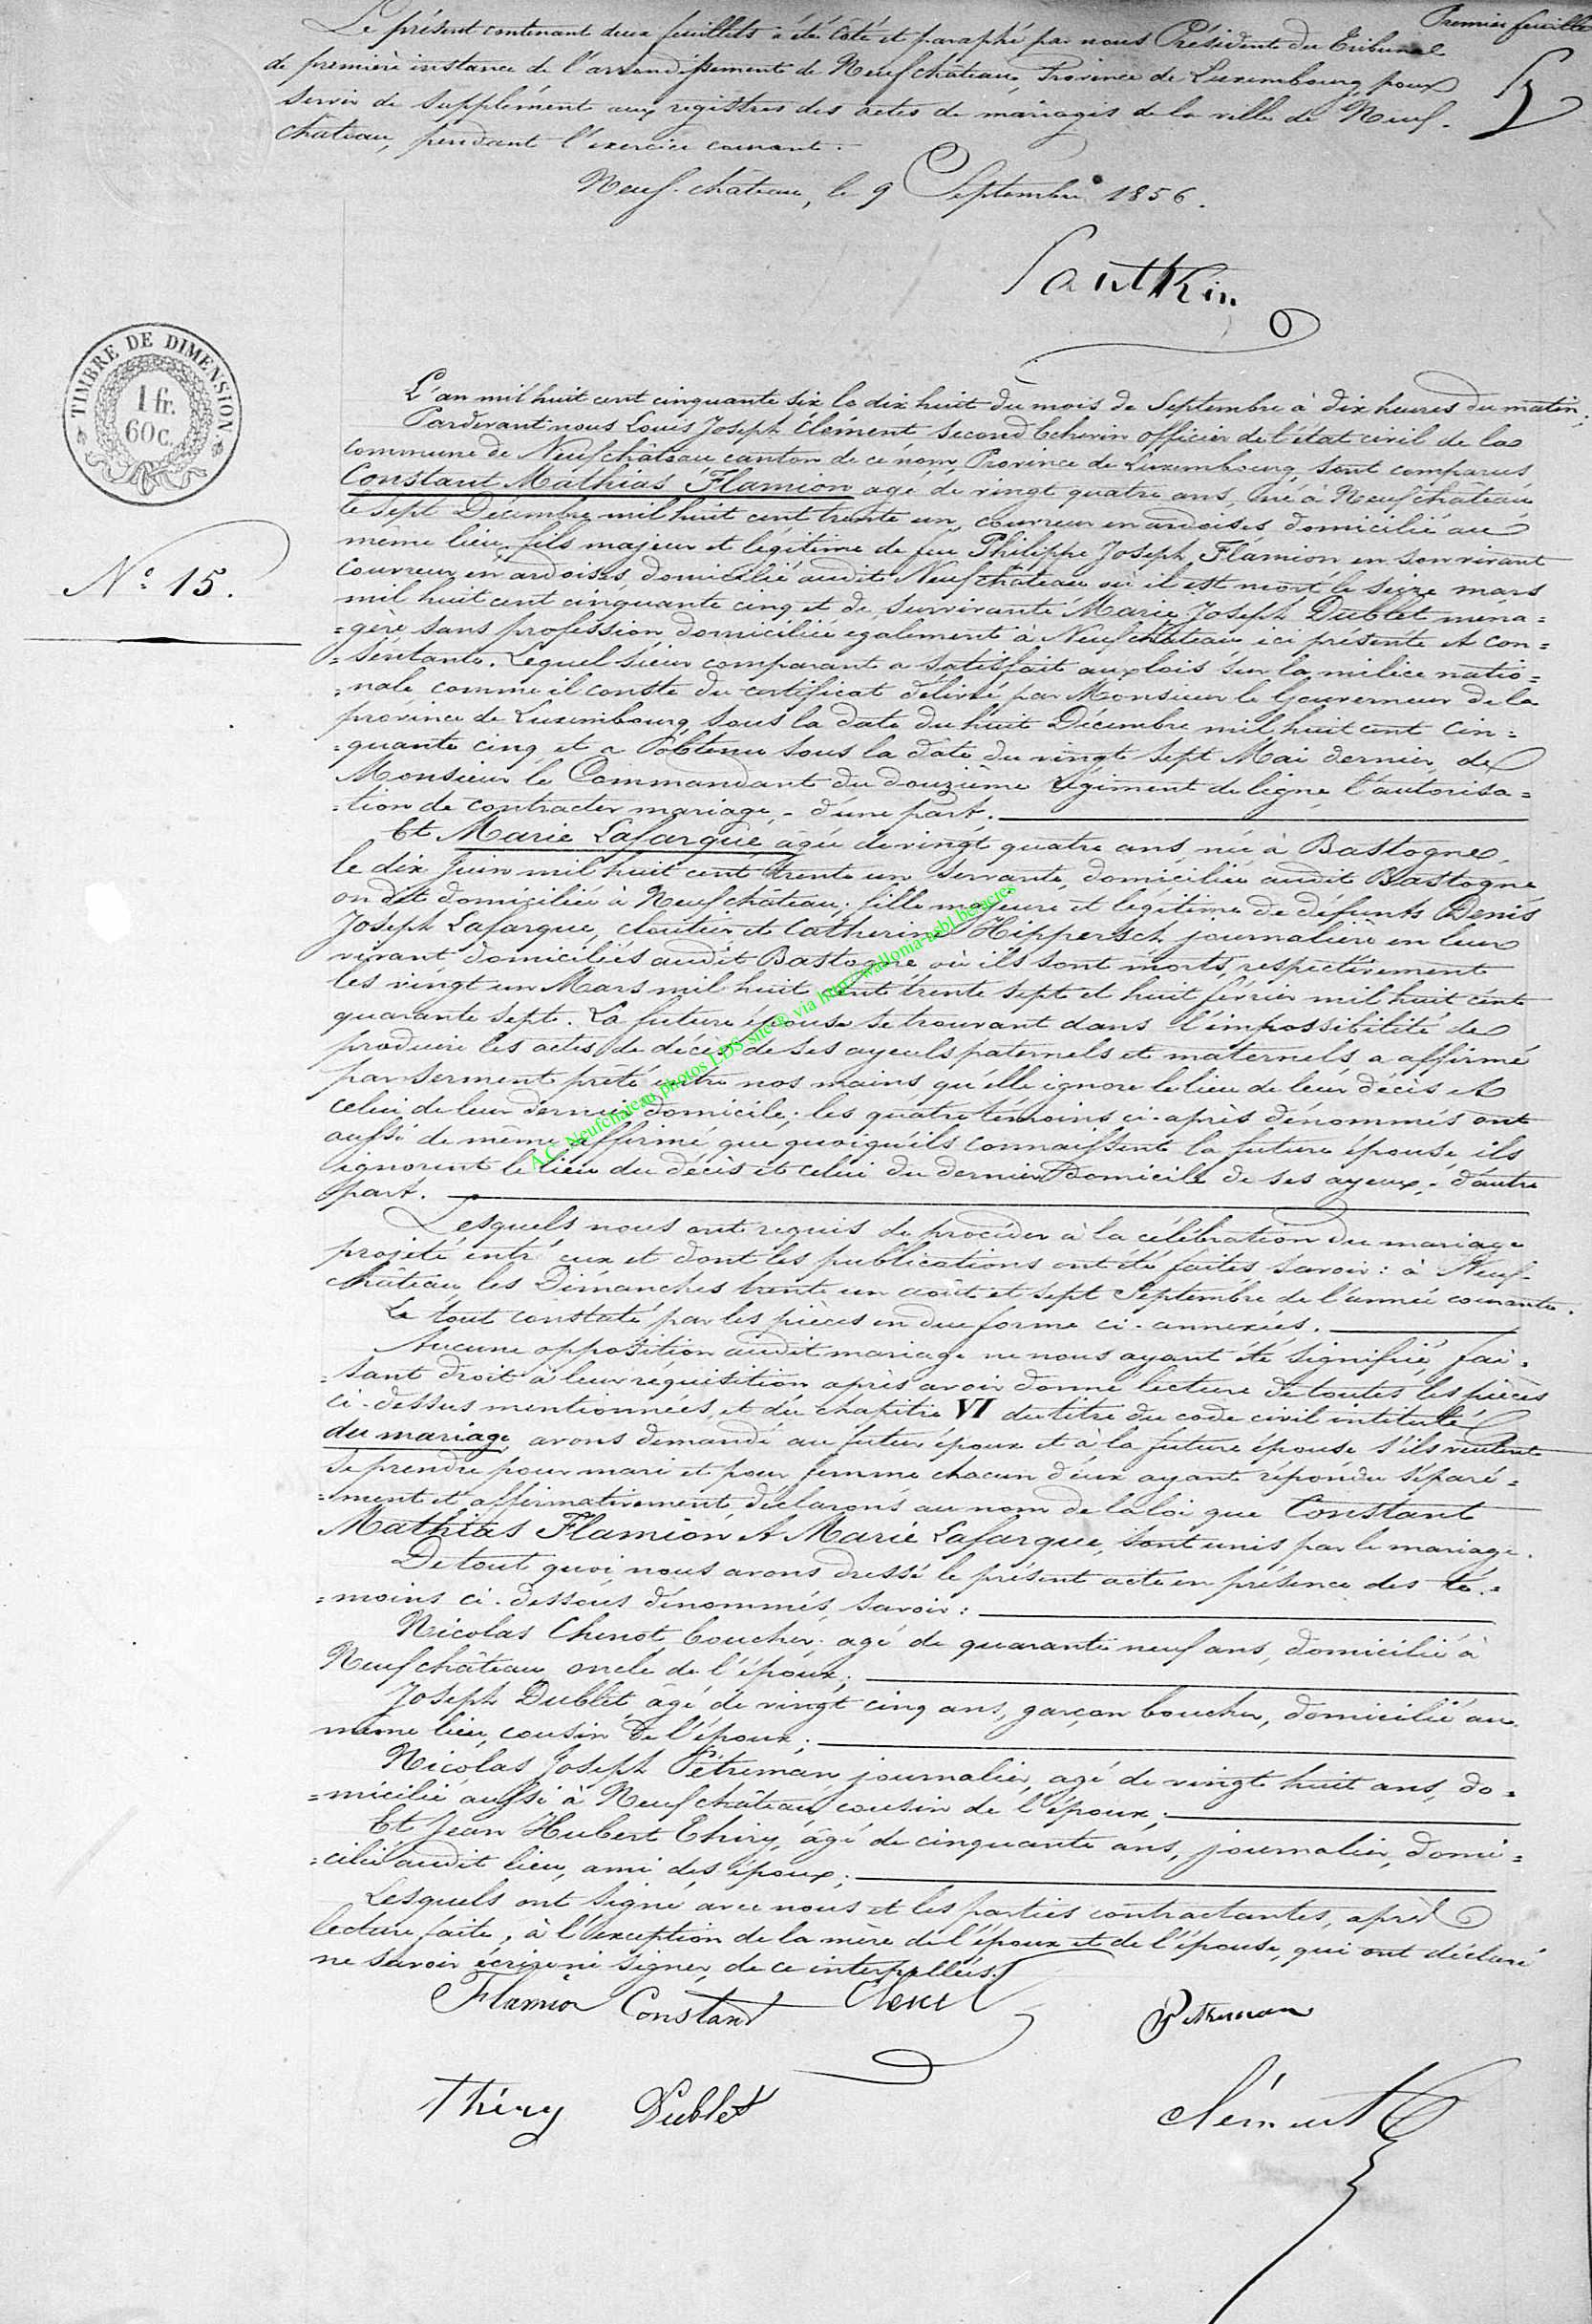 Premier feuillet
Le présent contenant deux feuillets a été côté et paraphé par nous Président du Tribunal
de première instance de l'arrondissement de Neufchâteau, Province de Luxembourg pour
servir de supplément aux registres des actes de mariages de la ville de Neuf-
château, pendant l'exercice courant.
Neuf-château, le 9 Septembre 1856.
Santkin
TIMBRE DE DIMENSION
1 fr.
60c.
N° 15.
L'an mil huit cent cinquante six le dix huit du mois de Septembre à dix heures du matin;
Pardevant nous Louis Joseph Clément, second Echevin officier de l'état civil de la
commune de Neufchâteau canton de ce nom, Province de Luxembourg, sont comparus
Constant Mathias Flamion agé de vingt quatre ans, né à Neufchâteau
le sept Décembre mil huit cent trente un, couvreur en ardoises, domicilié au
même lieu, fils majeur et légitime de feu Philippe Joseph Flamion en son vivant
couvreur en ardoises, domicilié audit Neufchâteau où il est mort le seize mars
mil huit cent cinquante cinq et de survivante Marie Joseph Dublet ména=
=gère sans profession, domiciliée également à Neufchâteau ici présente et con=
=sentante. Lequel sieur comparant a satisfait aux lois sur la milice natio=
=nale comme il conste du certificat délivré par Monsieur le Gouverneur de la
province de Luxembourg sous la date du huit Décembre mil huit cent cin=
=quante cinq et a obtenu sous la date du vingt sept Mai dernier, de
Monsieur le Commandant du douzième régiment de ligne l'autorisa=
=tion de contracter mariage,- d'une part.
Et Marie Lafarque agée de vingt quatre ans, née à Bastogne,
le dix Juin mil huit cent trente un servante, domiciliée audit Bastogne
on dit domiciliée à Neufchâteau; fille majeure et légitime de défunts Denis
Joseph Lafarque, cloutier et Catherine Hippersch journalière en leur
vivant domiciliés audit Bastogne où ils sont morts respectivement
les vingt un Mars mil huit cent trente sept et huit février mil huit cent
quarante sept. La future épouse se trouvant dans l'impossibilité de
produire les actes de décès de ses ayeuls paternels et maternels, a affirmé
par serment prêté entre nos mains qu'elle ignore le lieu de leur décès et
celui de leur dernier domicile; les quatre témoins ci-après dénommés ont
aussi de même affirmé que quoiqu'ils connaissent la future épouse, ils
ignorent le lieu du décès et celui du dernier domicile de ses ayeux,- d'autre
part.
A.C. Neufchateau photos LDS site @ via http://wallonia-asbl.be/actes
Lesquels nous ont requis de procéder à la célébration du mariage
projeté entr'eux et dont les publications ont été faites savoir: à Neuf-
château les Dimanches trente un août et sept Septembre de l'année courante.
Le tout constaté par les pièces en due forme ci-annexées.
Aucune opposition audit mariage ne nous ayant été signifiée, fai=
=sant droit à leur réquisition, après avoir donné lecture de toutes les pièces
ci-dessus mentionnées, et du chapitre VI du titre du code civil intitulé
du mariage, avons demandé au futur époux et à la future épouse s'ils veulent
se prendre pour mari et pour femme chacun d'eux ayant répondu séparé=
=ment et affirmativement, déclarons au nom de la loi que Constant
Mathias Flamion et Marie Lafarque, sont unis par le mariage.
De tout quoi nous avons dressé le présent acte en présence des té.=
=moins ci-dessous dénommés, savoir:
Nicolas Chenot, boucher, agé de quarante neuf ans, domicilié à
Neufchâteau, oncle de l'époux;
Joseph Dublet, âgé de vingt cinq ans, garçon boucher, domicilié au
même lieu, cousin de l'époux;
Nicolas Joseph Pétreman, journalier, agé de vingt huit ans, do=
=micilié aussi à Neufchâteau, cousin de l'époux;
Et Jean Hubert Thiry, âgé de cinquante ans, journalier, domi=
=cilié audit lieu, ami des époux;
Lesquels ont signé avec nous et les parties contractantes, après
lecture faite, à l'exception de la mère de l'époux et de l'épouse, qui ont déclaré
ne savoir écrire ni signer, de ce interpellées.
Flamion Constant
Petreman
Thiry Dublet
Clément